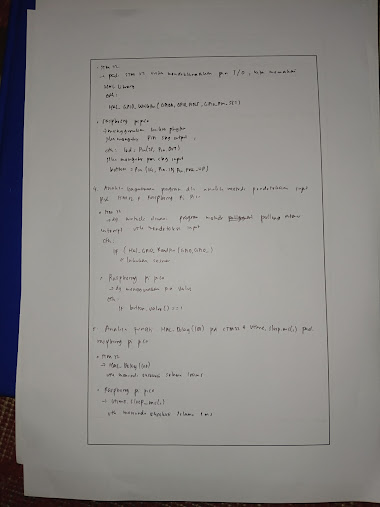 • STM 32
→ pada STM 32 untuk mendeklarasikan pin I/O, kita memakai
HAL Library
cth:
HAL_GPIO_WritePin(GPIOA, GPIO_PIN5, GPIO_Pin_SET)
• Raspberry pi pico
→ menggunakan
Pin sbg output,
cth: led = Pin(25, Pin.OUT)
pin sbg input
button = Pin(14, Pin.IN, Pin.PULL_UP)
4. Analisis bagaimana program dlm metode pendeteksian input
pd STM32 & Raspberry Pi Pico
• STM 32
→ dg metode polling atau
interrupt utk mendeteksi input
cth:
if (HAL_GPIO_ReadPin(GPIO, GPIO_)
• Raspberry pi pico
→ dg menggunakan pin value
cth:
if button.value() == 1
5. Analisis fungsi HAL_Delay(100) pd STM32 & utime.sleep_ms(1) pad
raspberry pi pico
• STM 32
→ HAL_Delay(100)
utk menunda eksekusi selama 100ms
• Raspberry pi pico
→ utime.sleep_ms(1)
utk menunda eksekusi selama 1 ms